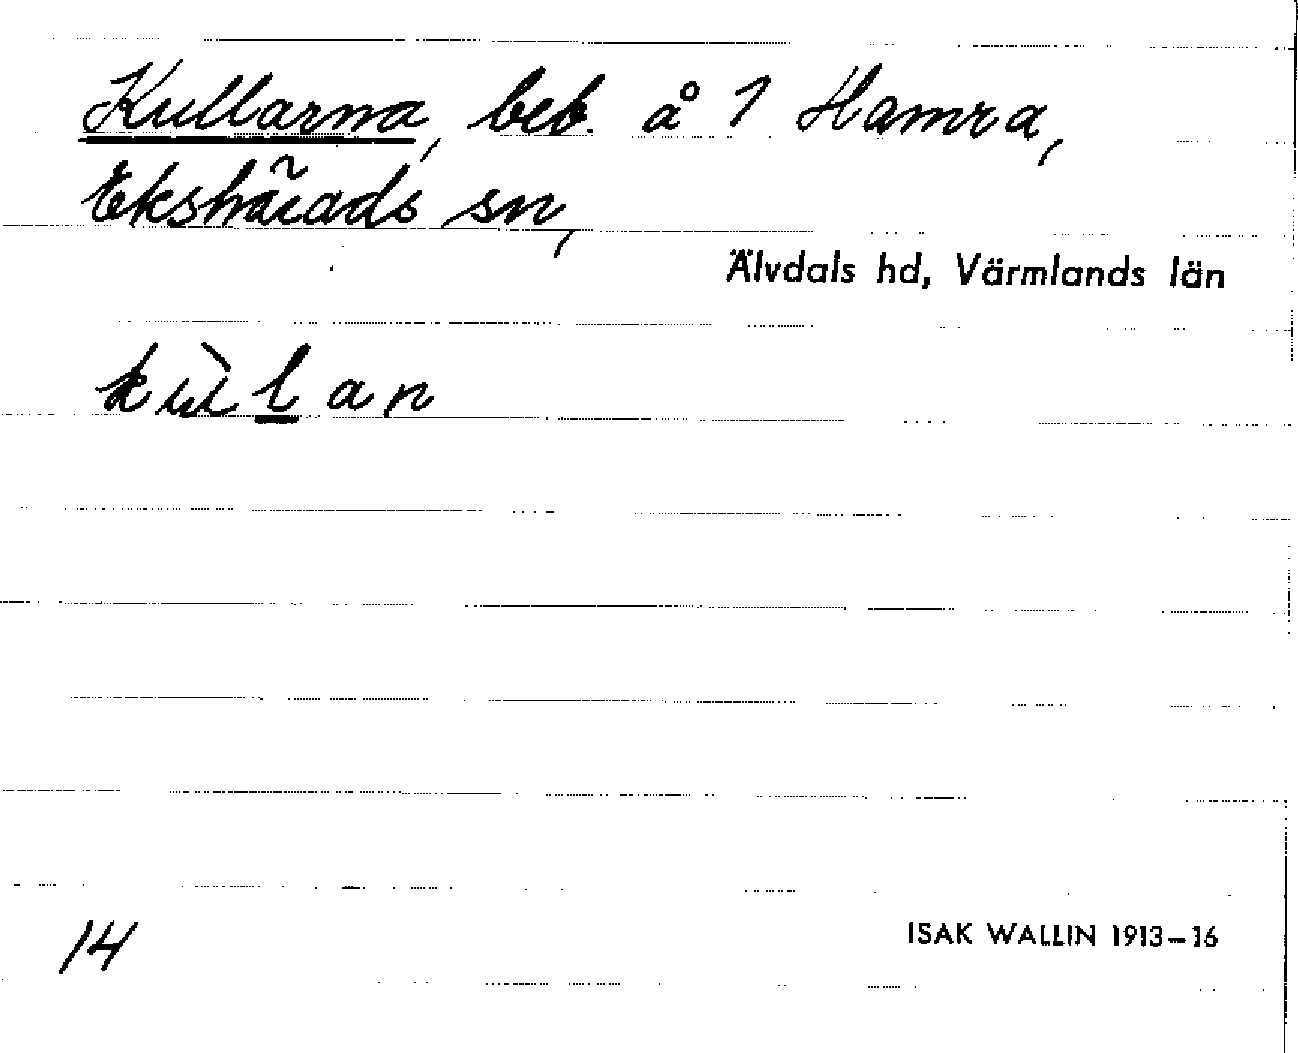 Kullarna, beb. å 1 Hamra,
Ekshärads sn,
Älvdals hd, Värmlands län
kùlan
14
ISAK WALLIN 1913–16